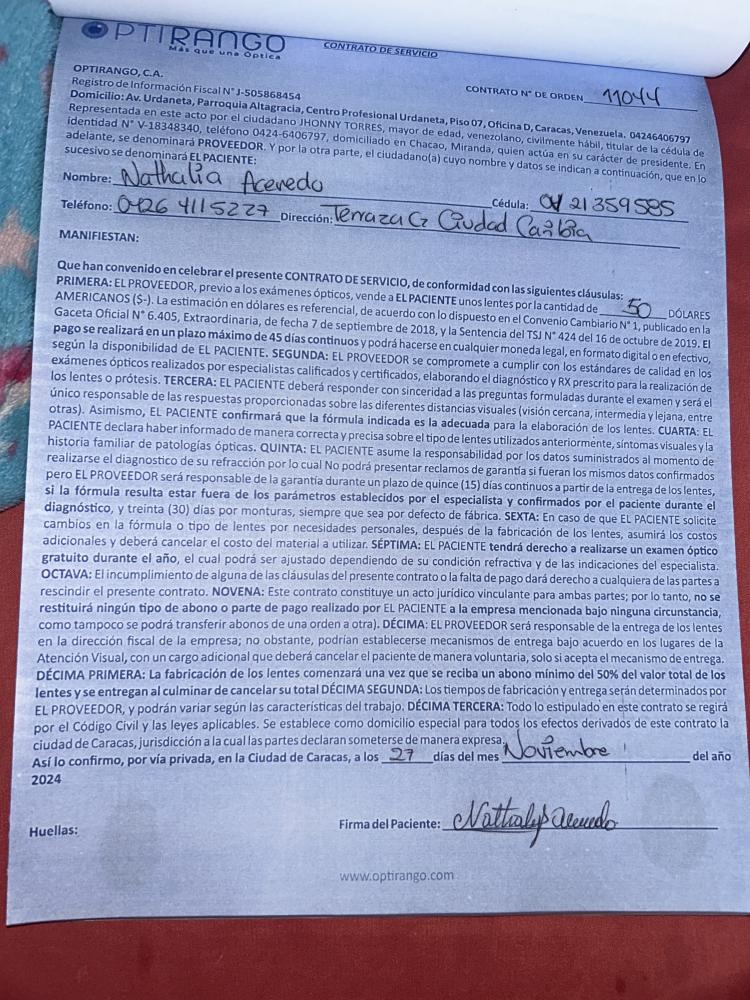 OPTIRANGO
Más que una Óptica
CONTRATO DE SERVICIO
OPTIRANGO, C.A.
Registro de Información Fiscal N° J-505868454
CONTRATO N° DE ORDEN 11044
Domicilio: Av. Urdaneta, Parroquia Altagracia, Centro Profesional Urdaneta, Piso 07, Oficina D, Caracas, Venezuela. 04246406797
Representada en este acto por el ciudadano JHONNY TORRES, mayor de edad, venezolano, civilmente hábil, titular de la cédula de
identidad N° V-18348340, teléfono 0424-6406797, domiciliado en Chacao, Miranda, quien actúa en su carácter de presidente. En
adelante, se denominará PROVEEDOR. Y por la otra parte, el ciudadano(a) cuyo nombre y datos se indican a continuación, que en lo
sucesivo se denominará EL PACIENTE:
Nombre: Nathalia Acevedo Cédula: 21359585
Teléfono: 0426 4115227 Dirección: Terraza Ciudad
MANIFIESTAN:
Que han convenido en celebrar el presente CONTRATO DE SERVICIO, de conformidad con las siguientes cláusulas:
PRIMERA: EL PROVEEDOR, previo a los exámenes ópticos, vende a EL PACIENTE unos lentes por la cantidad de 50 DÓLARES
AMERICANOS ($-). La estimación en dólares es referencial, de acuerdo con lo dispuesto en el Convenio Cambiario N° 1, publicado en la
Gaceta Oficial N° 6.405, Extraordinaria, de fecha 7 de septiembre de 2018, y la Sentencia del TSJ N° 424 del 16 de octubre de 2019. El
pago se realizará en un plazo máximo de 45 días continuos y podrá hacerse en cualquier moneda legal, en formato digital o en efectivo,
según la disponibilidad de EL PACIENTE. SEGUNDA: EL PROVEEDOR se compromete a cumplir con los estándares de calidad en los
exámenes ópticos realizados por especialistas calificados y certificados, elaborando el diagnóstico y RX prescrito para la realización de
los lentes o prótesis. TERCERA: EL PACIENTE deberá responder con sinceridad a las preguntas formuladas durante el examen y será el
único responsable de las respuestas proporcionadas sobre las diferentes distancias visuales (visión cercana, intermedia y lejana, entre
otras). Asimismo, EL PACIENTE confirmará que la fórmula indicada es la adecuada para la elaboración de los lentes. CUARTA: EL
PACIENTE declara haber informado de manera correcta y precisa sobre el tipo de lentes utilizados anteriormente, síntomas visuales y la
historia familiar de patologías ópticas. QUINTA: EL PACIENTE asume la responsabilidad por los datos suministrados al momento de
realizarse el diagnostico de su refracción por lo cual No podrá presentar reclamos de garantía si fueran los mismos datos confirmados
pero EL PROVEEDOR será responsable de la garantía durante un plazo de quince (15) días continuos a partir de la entrega de los lentes,
si la fórmula resulta estar fuera de los parámetros establecidos por el especialista y confirmados por el paciente durante el
diagnóstico, y treinta (30) días por monturas, siempre que sea por defecto de fábrica. SEXTA: En caso de que EL PACIENTE solicite
cambios en la fórmula o tipo de lentes por necesidades personales, después de la fabricación de los lentes, asumirá los costos
adicionales y deberá cancelar el costo del material a utilizar. SÉPTIMA: EL PACIENTE tendrá derecho a realizarse un examen óptico
gratuito durante el año, el cual podrá ser ajustado dependiendo de su condición refractiva y de las indicaciones del especialista.
OCTAVA: El incumplimiento de alguna de las cláusulas del presente contrato o la falta de pago dará derecho a cualquiera de las partes a
rescindir el presente contrato. NOVENA: Este contrato constituye un acto jurídico vinculante para ambas partes; por lo tanto, no se
restituirá ningún tipo de abono o parte de pago realizado por EL PACIENTE a la empresa mencionada bajo ninguna circunstancia,
como tampoco se podrá transferir abonos de una orden a otra). DÉCIMA: EL PROVEEDOR será responsable de la entrega de los lentes
en la dirección fiscal de la empresa; no obstante, podrían establecerse mecanismos de entrega bajo acuerdo en los lugares de la
Atención Visual, con un cargo adicional que deberá cancelar el paciente de manera voluntaria, solo si acepta el mecanismo de entrega.
DÉCIMA PRIMERA: La fabricación de los lentes comenzará una vez que se reciba un abono mínimo del 50% del valor total de los
lentes y se entregan al culminar de cancelar su total DÉCIMA SEGUNDA: Los tiempos de fabricación y entrega serán determinados por
EL PROVEEDOR, y podrán variar según las características del trabajo. DÉCIMA TERCERA: Todo lo estipulado en este contrato se regirá
por el Código Civil y las leyes aplicables. Se establece como domicilio especial para todos los efectos derivados de este contrato la
ciudad de Caracas, jurisdicción a la cual las partes declaran someterse de manera expresa.
Así lo confirmo, por vía privada, en la Ciudad de Caracas, a los 27 días del mes Noviembre del año
2024
Huellas:
Firma del Paciente: Nathaly Acevedo
www.optirango.com